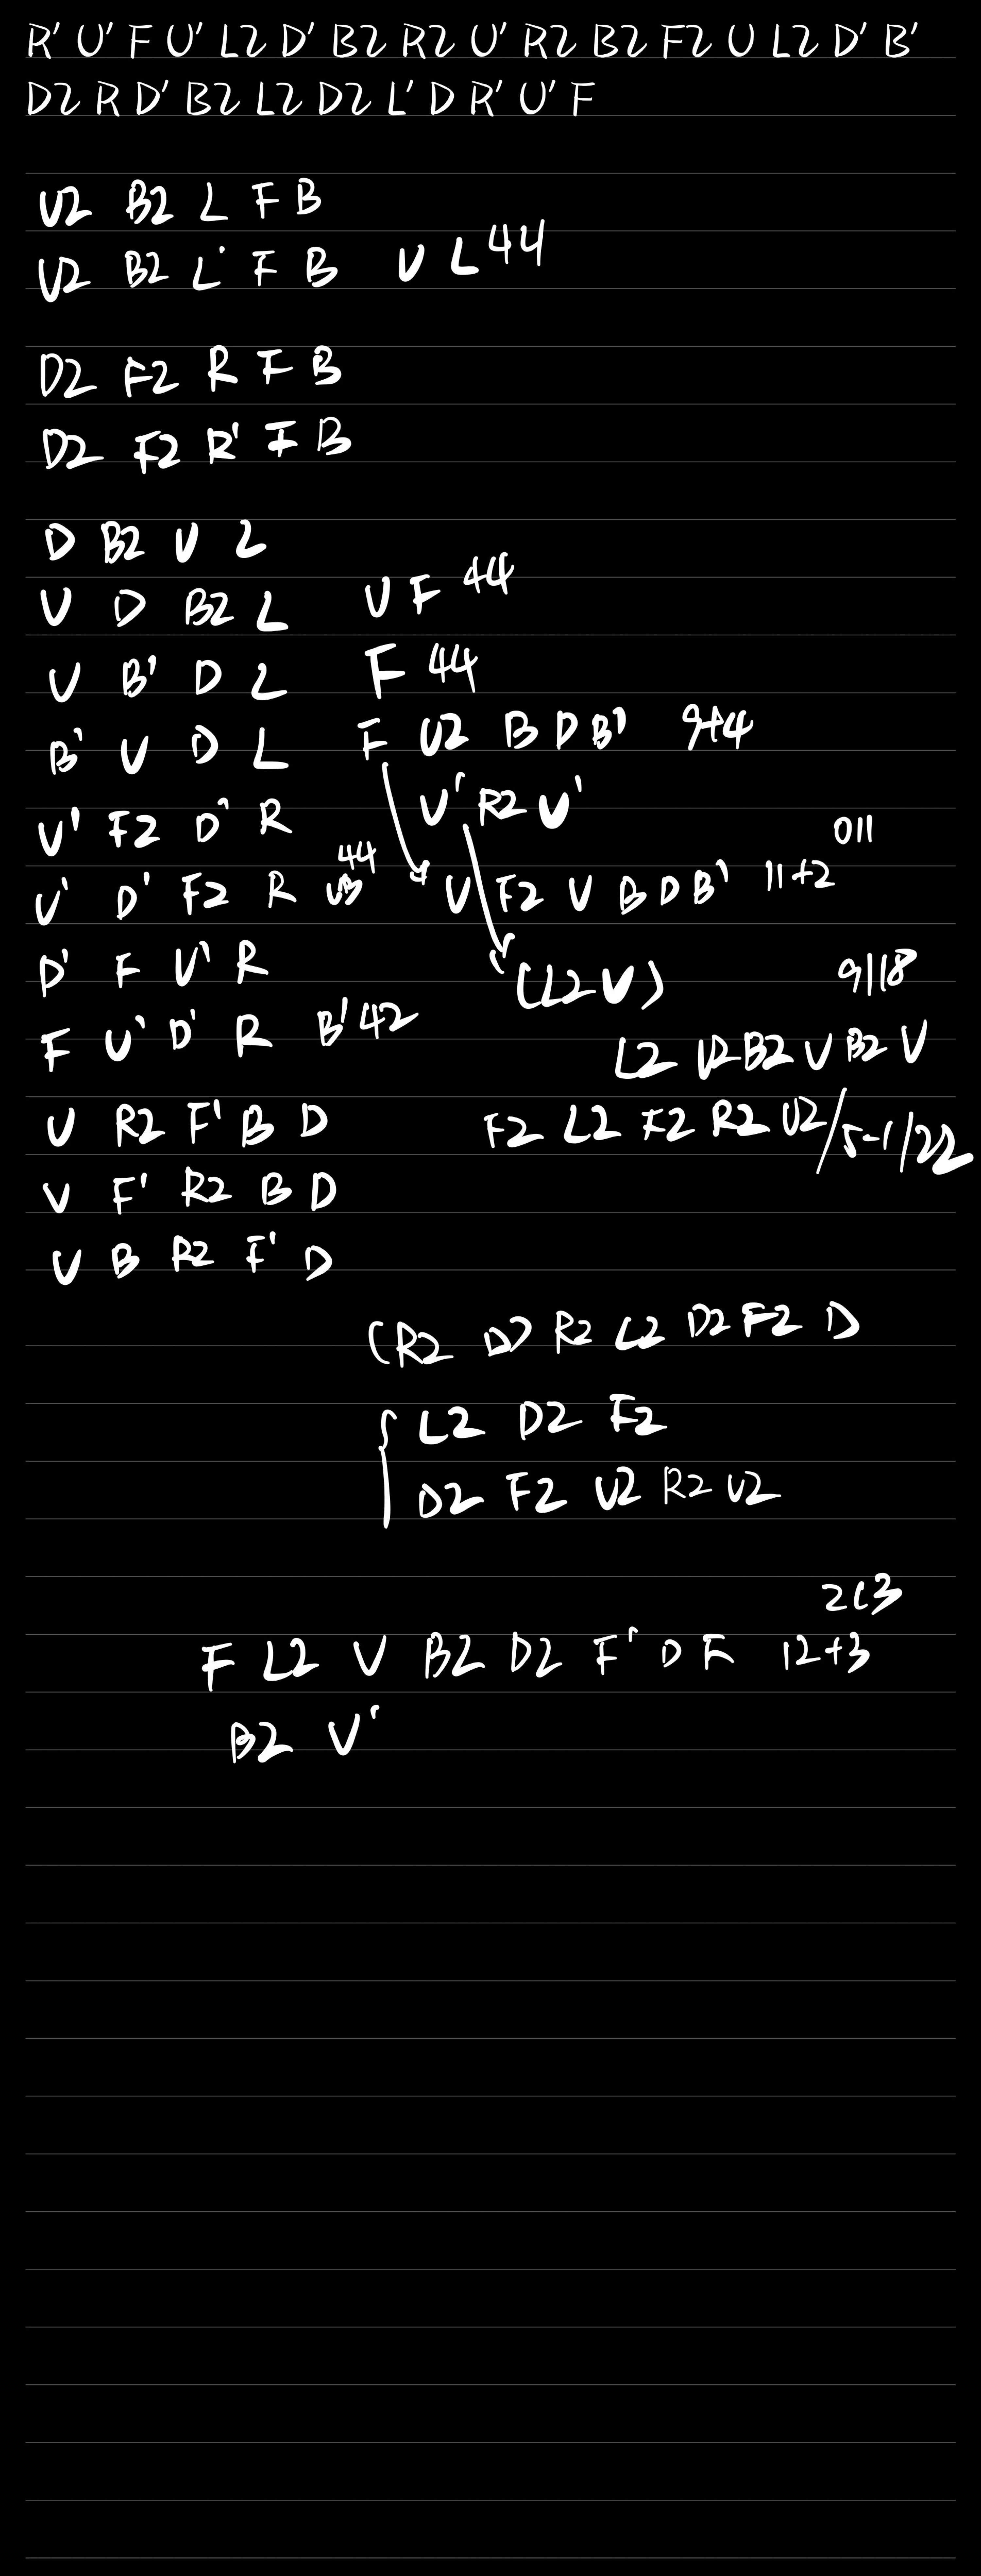 R' U' F U' L2 D' B2 R2 U' R2 B2 F2 U L2 D' B'
D2 R D' B2 L2 D2 L' D R' U' F
U2 B2 L F B
U2 B2 L' F B U L 44
D2 F2 R F B
D2 F2 R' F B
D B2 U L
U D B2 L U F 44
U B' D L F 44
B' U D L F U2 B D B' 9+4
U' R2 U'
U' F2 D' R
011
U' D' F2 R UB 44 U F2 U B D B' 11+2
D' F U' R (L2 U) 9118
F U' D' R B' 42 L2 U2 B2 U B2 U
U R2 F' B D F2 L2 F2 R2 U2/5-1/22
U F' R2 B D
U B R2 F' D
(R2 D) R2 L2 D2 F2 D
{ L2 D2 F2
D2 F2 U2 R2 U2
2c3
F L2 U B2 D2 F' D F 12+3
B2 U'